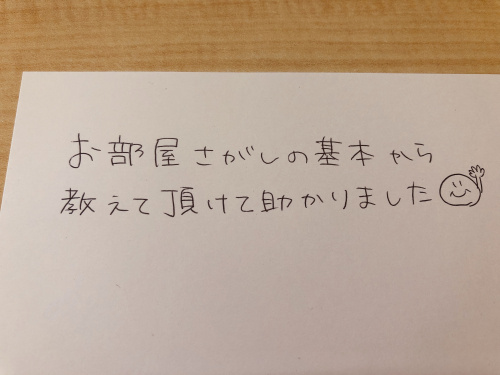 お部屋さがしの基本から
教えて頂けて助かりました